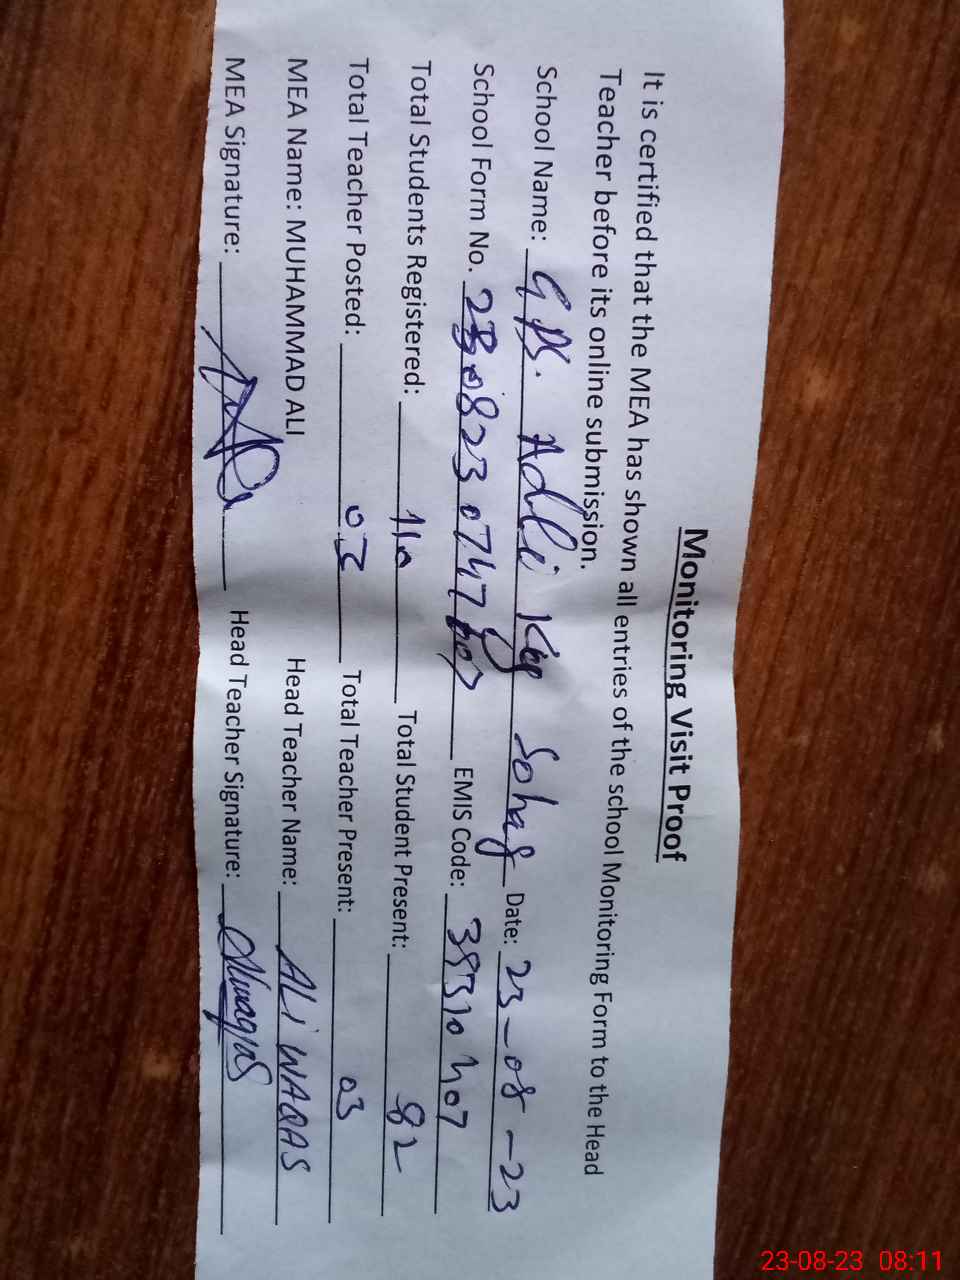 Monitoring Visit Proof
It is certified that the MEA has shown all entries of the school Monitoring Form to the Head
Teacher before its online submission.
School Name: GPS. Adlli Key Sohag Date: 23-08-23
School Form No. 230823 0747 EMIS Code: 38310407
Total Students Registered: 110 Total Student Present: 82
Total Teacher Posted: 03 Total Teacher Present: 03
MEA Name: MUHAMMAD ALI Head Teacher Name: ALI WAQAS
MEA Signature: Head Teacher Signature: Aliwaqas
23-08-23 08:11